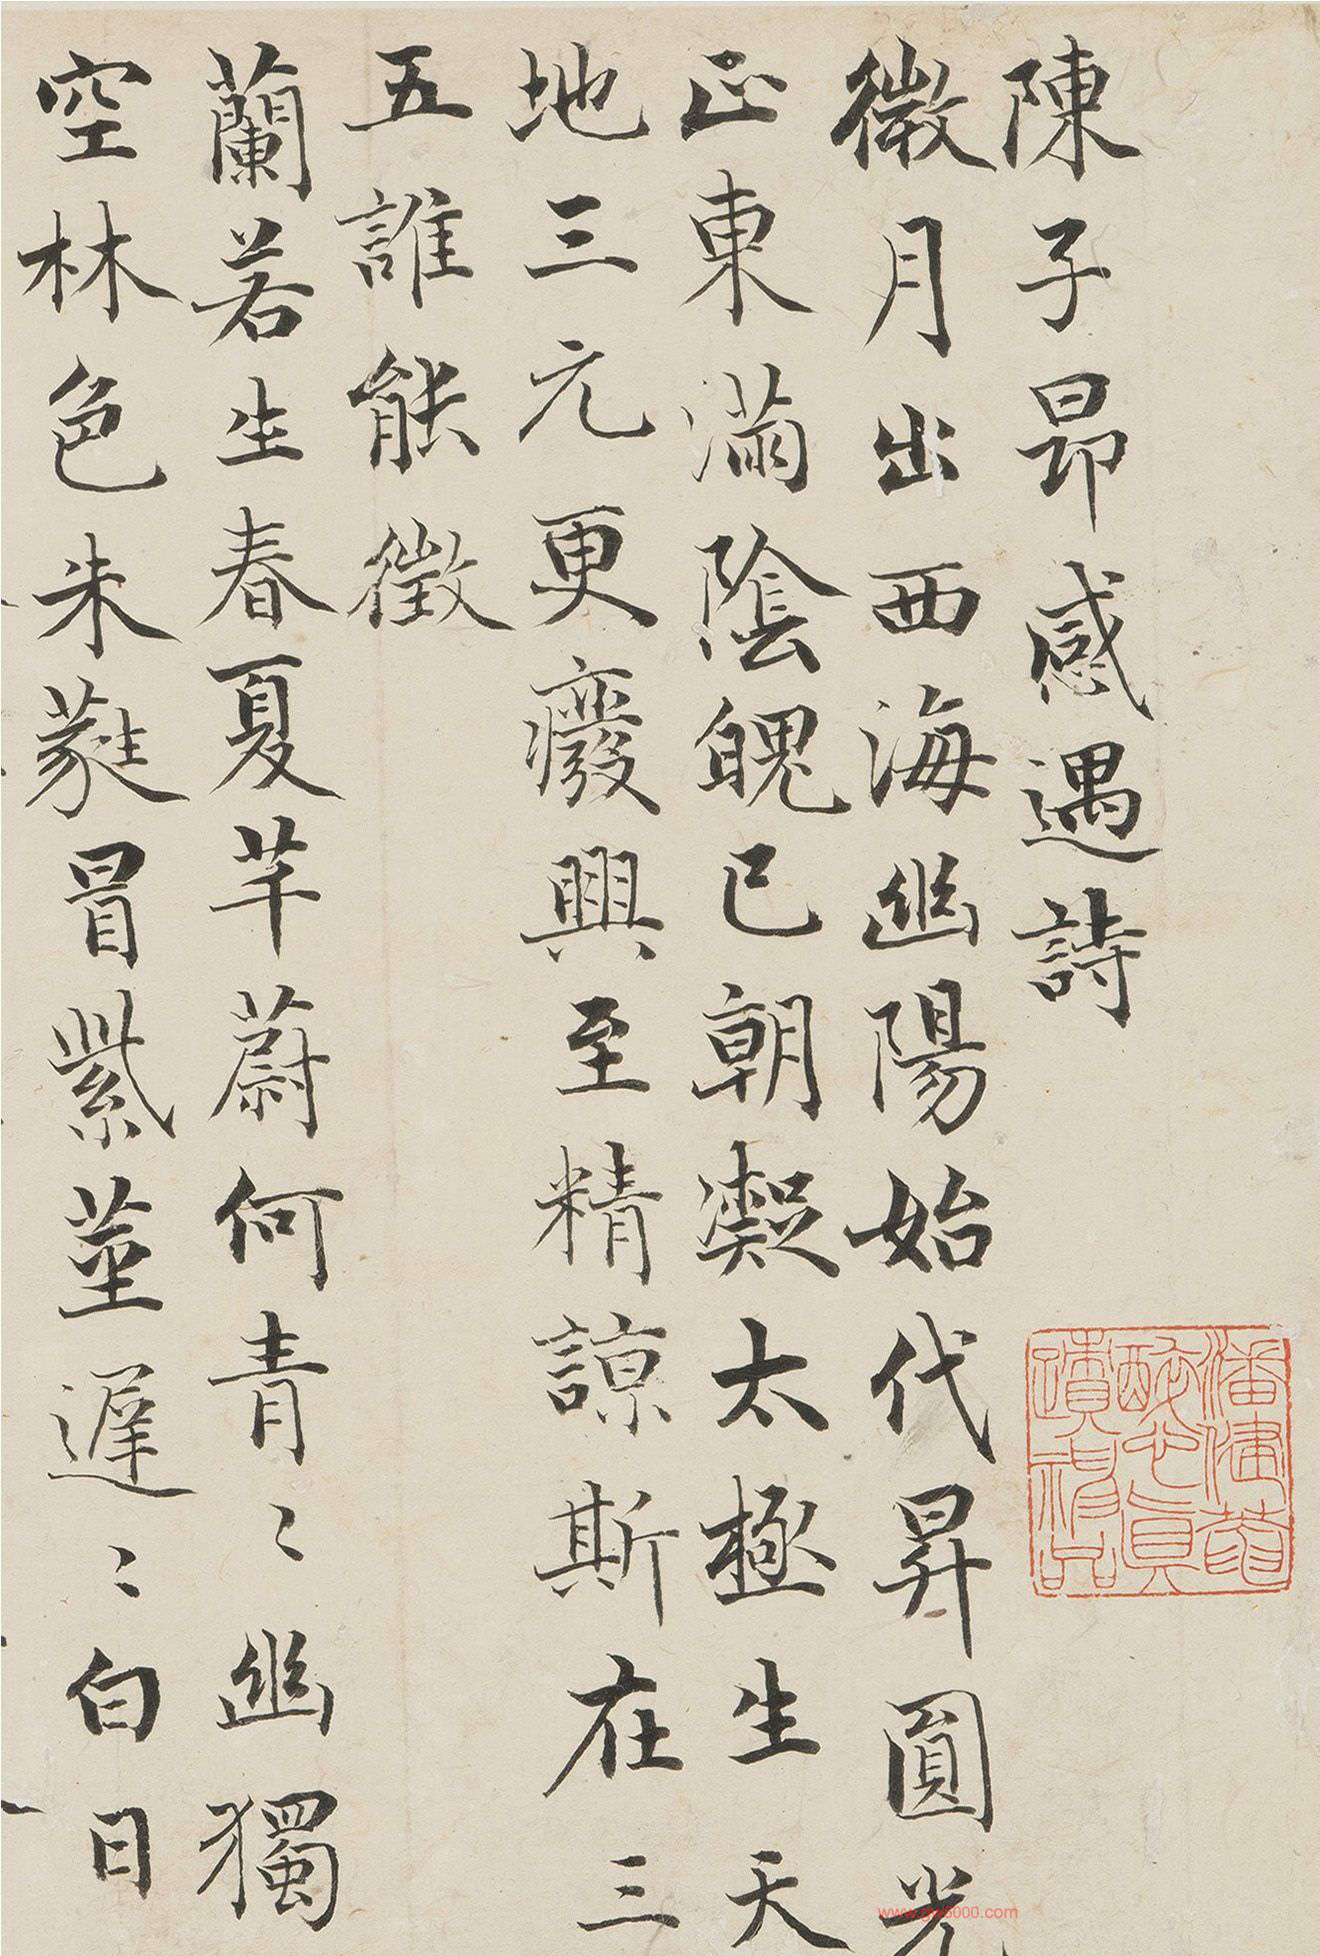 陳子昻感遇詩
微月出西海幽陽始代昇圓光
正東滿陰魄已朝凝太極生天
地三元更癈興至精諒斯在三
五誰能徵
蘭若生春夏芊蔚何青〻幽獨
空林色朱蕤冒紫莖遲〻白日
潘健菴
酷心真
蹟神品